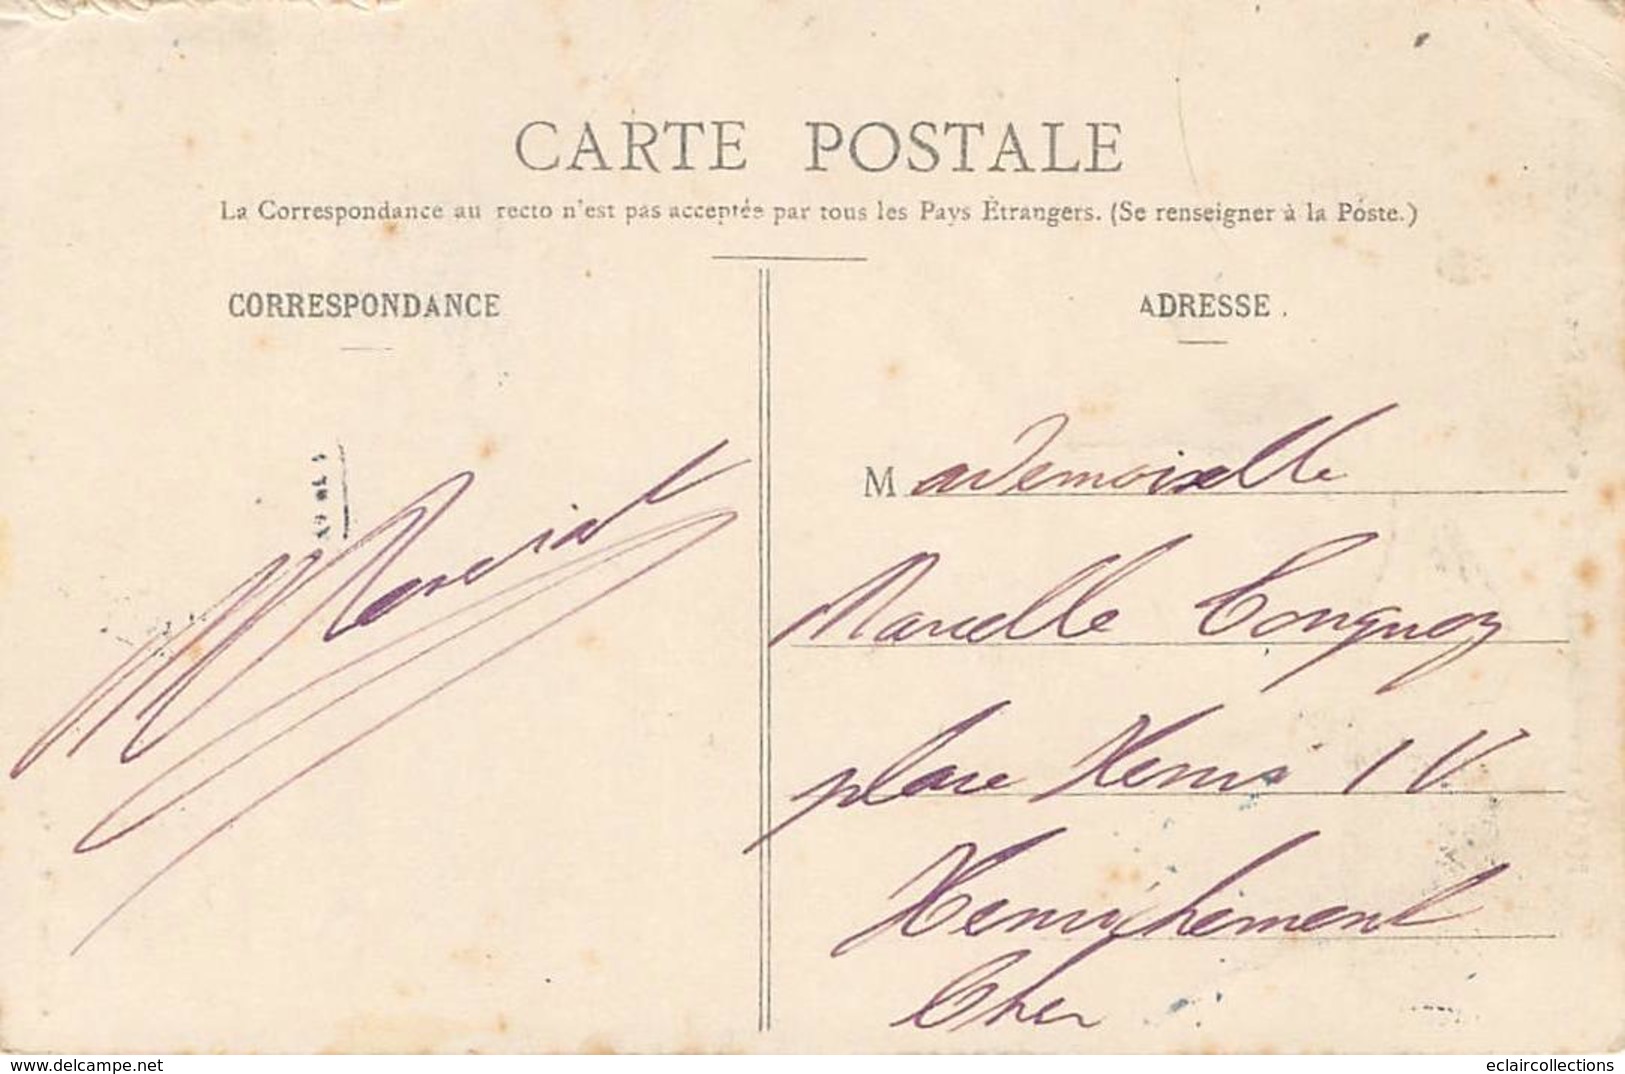 CARTE POSTALE
La Correspondance au recto n'est pas acceptée par tous les Pays Étrangers. (Se renseigner à la Poste.)
CORRESPONDANCE
ADRESSE.
Mademoiselle
Marcelle
place Henri IV
Henrichement
Cher
www.delcampe.net
eclaircollections